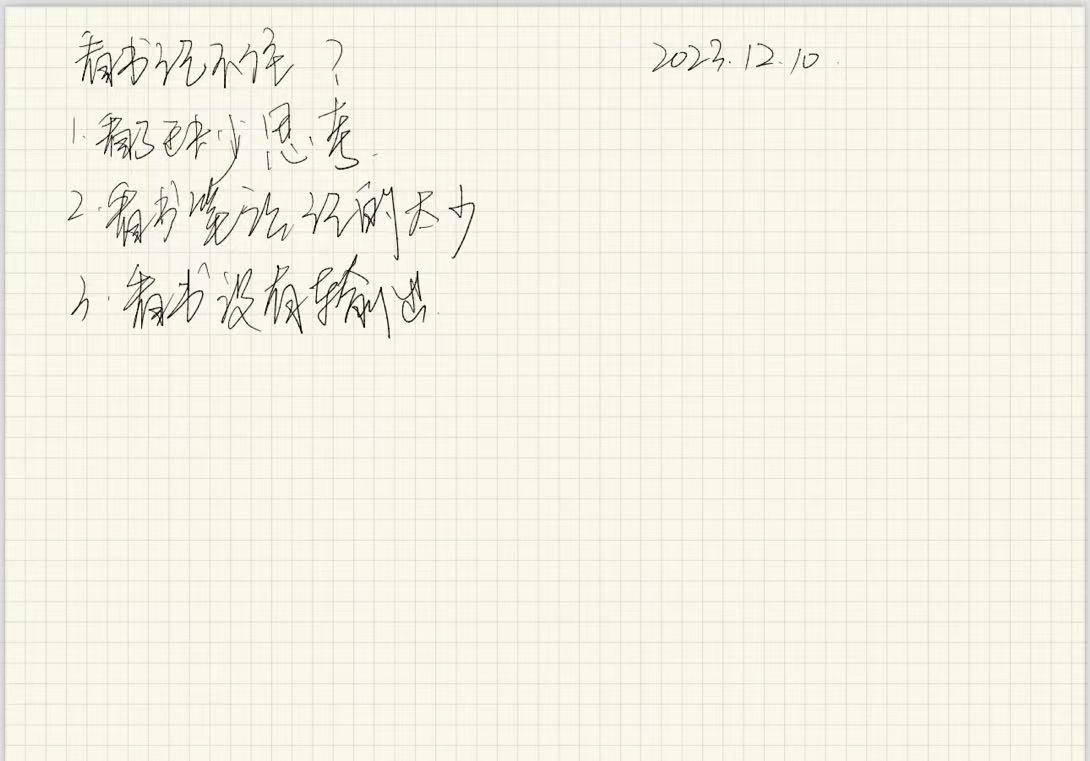 看书记不住？ 2023.12.10
1.看了缺少思考.
2.看书笔记记的太少
3.看书没有输出.